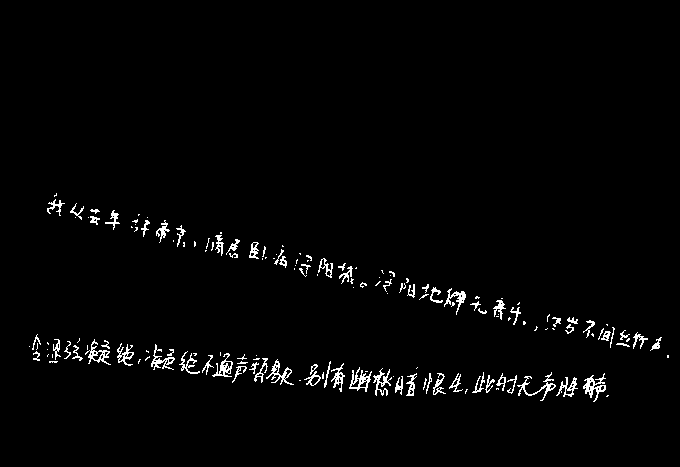 我从去年辞帝京、谪居卧病浔阳城。浔阳地僻无音乐.,终岁不闻丝竹声.
冷涩弦凝绝,凝绝不通声暂歇.别有幽愁暗恨生,此时无声胜有声.